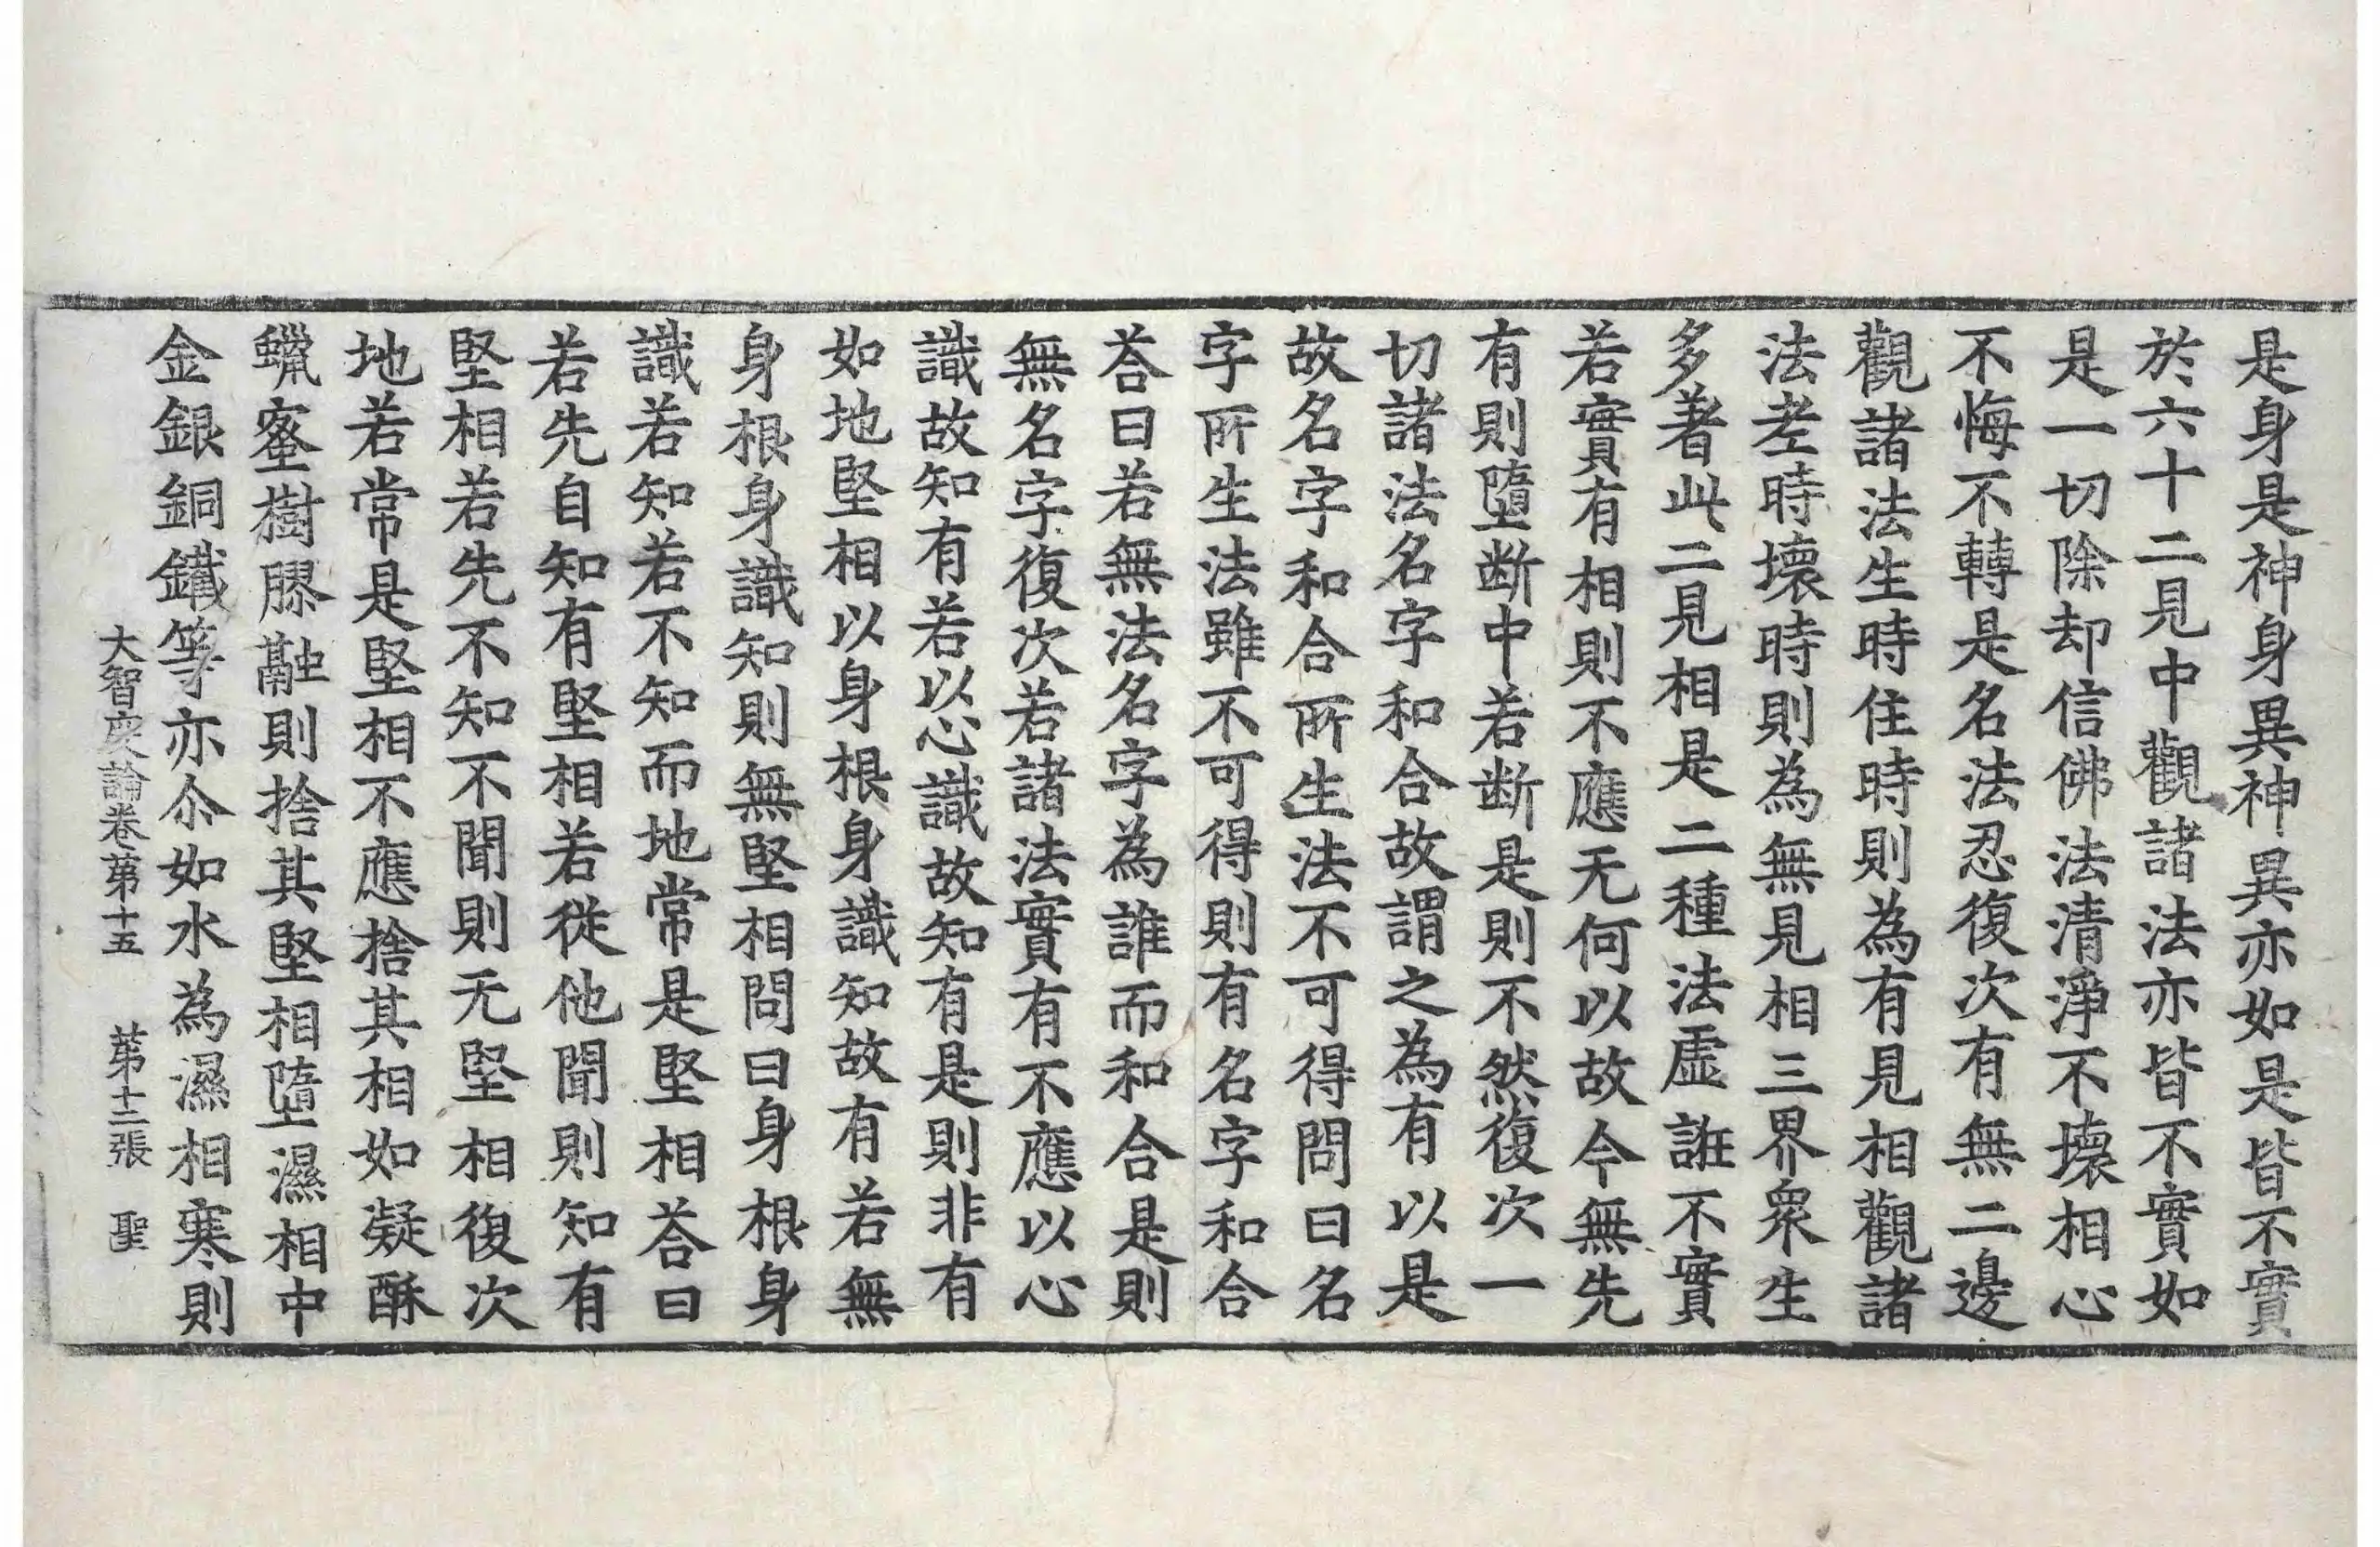 是身是神身異神異亦如是皆不實
於六十二見中觀諸法亦皆不實如
是一切除却信佛法清淨不壞相心
不悔不轉是名法忍復次有無二邊
觀諸法生時住時則為有見相觀諸
法老時壞時則為無見相三界衆生
多著此二見相是二種法虛誑不實
若實有相則不應无何以故今無先
有則墮断中若断是則不然復次一
切諸法名字和合故謂之為有以是
故名字和合所生法不可得問曰名
字所生法雖不可得則有名字和合
荅曰若無法名字為誰而和合是則
無名字復次若諸法實有不應以心
識故知有若以心識故知有是則非有
如地堅相以身根身識知故有若無
身根身識知則無堅相問曰身根身
識若知若不知而地常是堅相荅曰
若先自知有堅相若從他聞則知有
堅相若先不知不聞則无堅相復次
地若常是堅相不應捨其相如凝酥
蠟蜜樹膠融則捨其堅相墮濕相中
金銀銅鐵等亦尒如水為濕相寒則
大智度論卷苐十五 苐十二張 聖